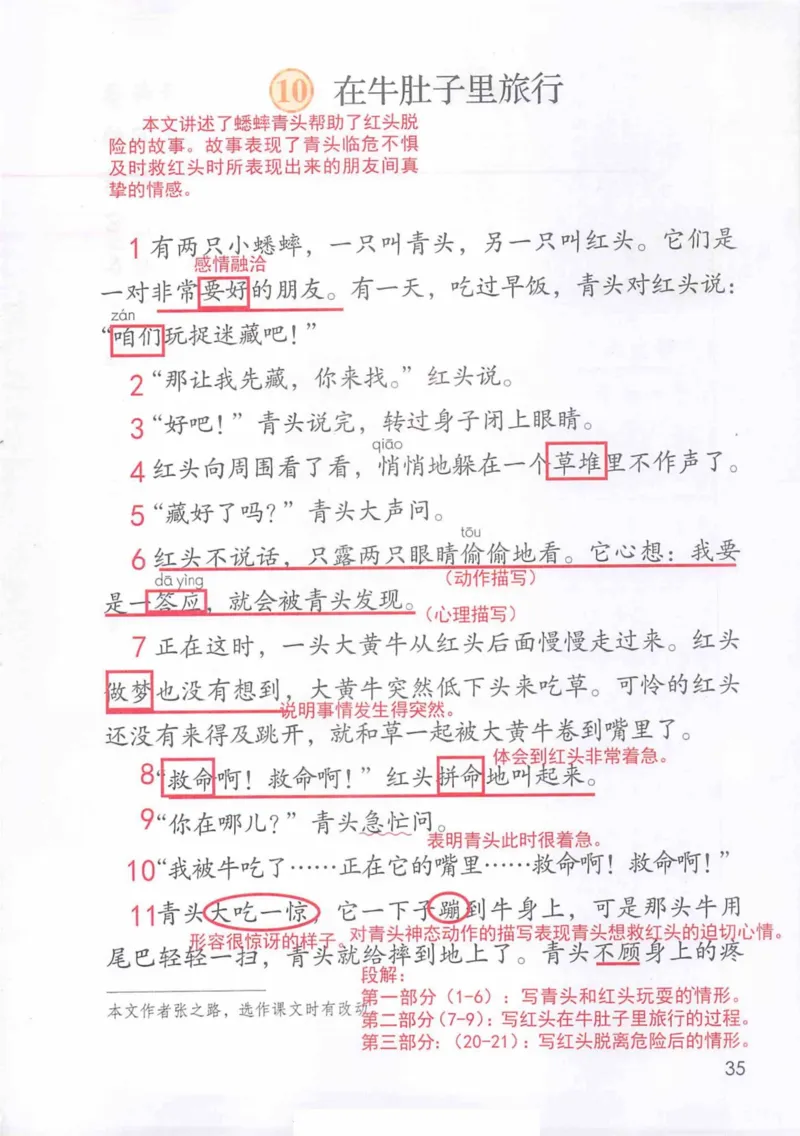 10 在牛肚子里旅行
本文讲述了蟋蟀青头帮助了红头脱
险的故事。故事表现了青头临危不惧
及时救红头时所表现出来的朋友间真
挚的情感。
1 有两只小蟋蟀，一只叫青头，另一只叫红头。它们是
感情融洽
一对非常要好的朋友。有一天，吃过早饭，青头对红头说：
zán
“咱们玩捉迷藏吧！”
2 “那让我先藏，你来找。”红头说。
3 “好吧！”青头说完，转过身子闭上眼睛。
qiāo
4 红头向周围看了看，悄悄地躲在一个草堆里不作声了。
5 “藏好了吗？”青头大声问。
tōu
6 红头不说话，只露两只眼睛偷偷地看。它心想：我要
dā yìng
（动作描写）
是一答应，就会被青头发现。
（心理描写）
7 正在这时，一头大黄牛从红头后面慢慢走过来。红头
做梦也没有想到，大黄牛突然低下头来吃草。可怜的红头
说明事情发生得突然。
还没有来得及跳开，就和草一起被大黄牛卷到嘴里了。
体会到红头非常着急。
8 “救命啊！救命啊！”红头拼命地叫起来。
9 “你在哪儿？”青头急忙问。
表明青头此时很着急。
10 “我被牛吃了……正在它的嘴里……救命啊！救命啊！”
11 青头大吃一惊，它一下子蹦到牛身上，可是那头牛用
形容很惊讶的样子。对青头神态动作的描写表现青头想救红头的迫切心情。
尾巴轻轻一扫，青头就给摔到地上了。青头不顾身上的疼
段解：
本文作者张之路，选作课文时有改动
第一部分（1-6）：写青头和红头玩耍的情形。
第二部分（7-9）：写红头在牛肚子里旅行的过程。
第三部分：（20-21）：写红头脱离危险后的情形。
35